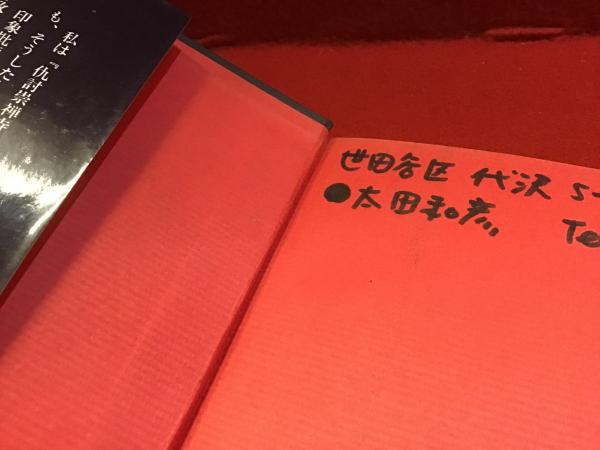 私は『仇討崇禅寺
も、そうした
印象批
世田谷区 代沢 5-
●太田和彦 Te